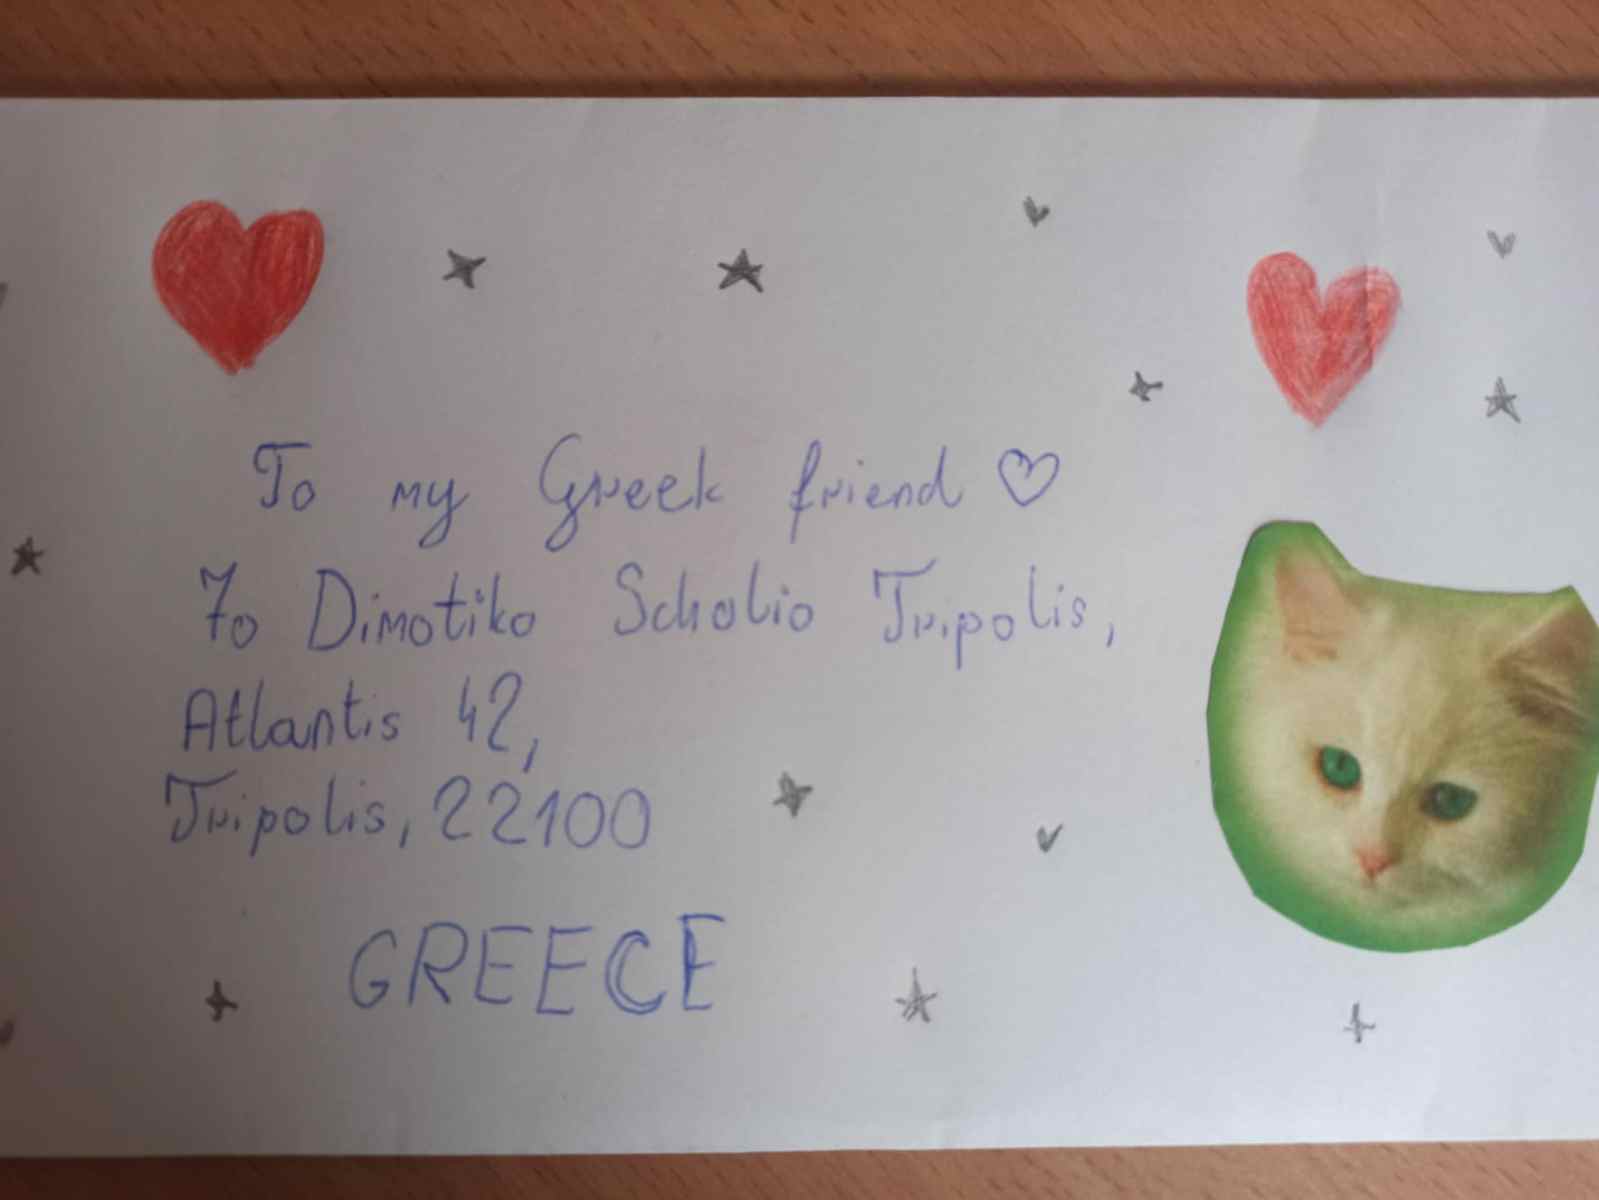 To my Greek friend ♡
7o Dimotiko Scholio Tripolis,
Atlantis 42,
Tripolis, 22100
GREECE